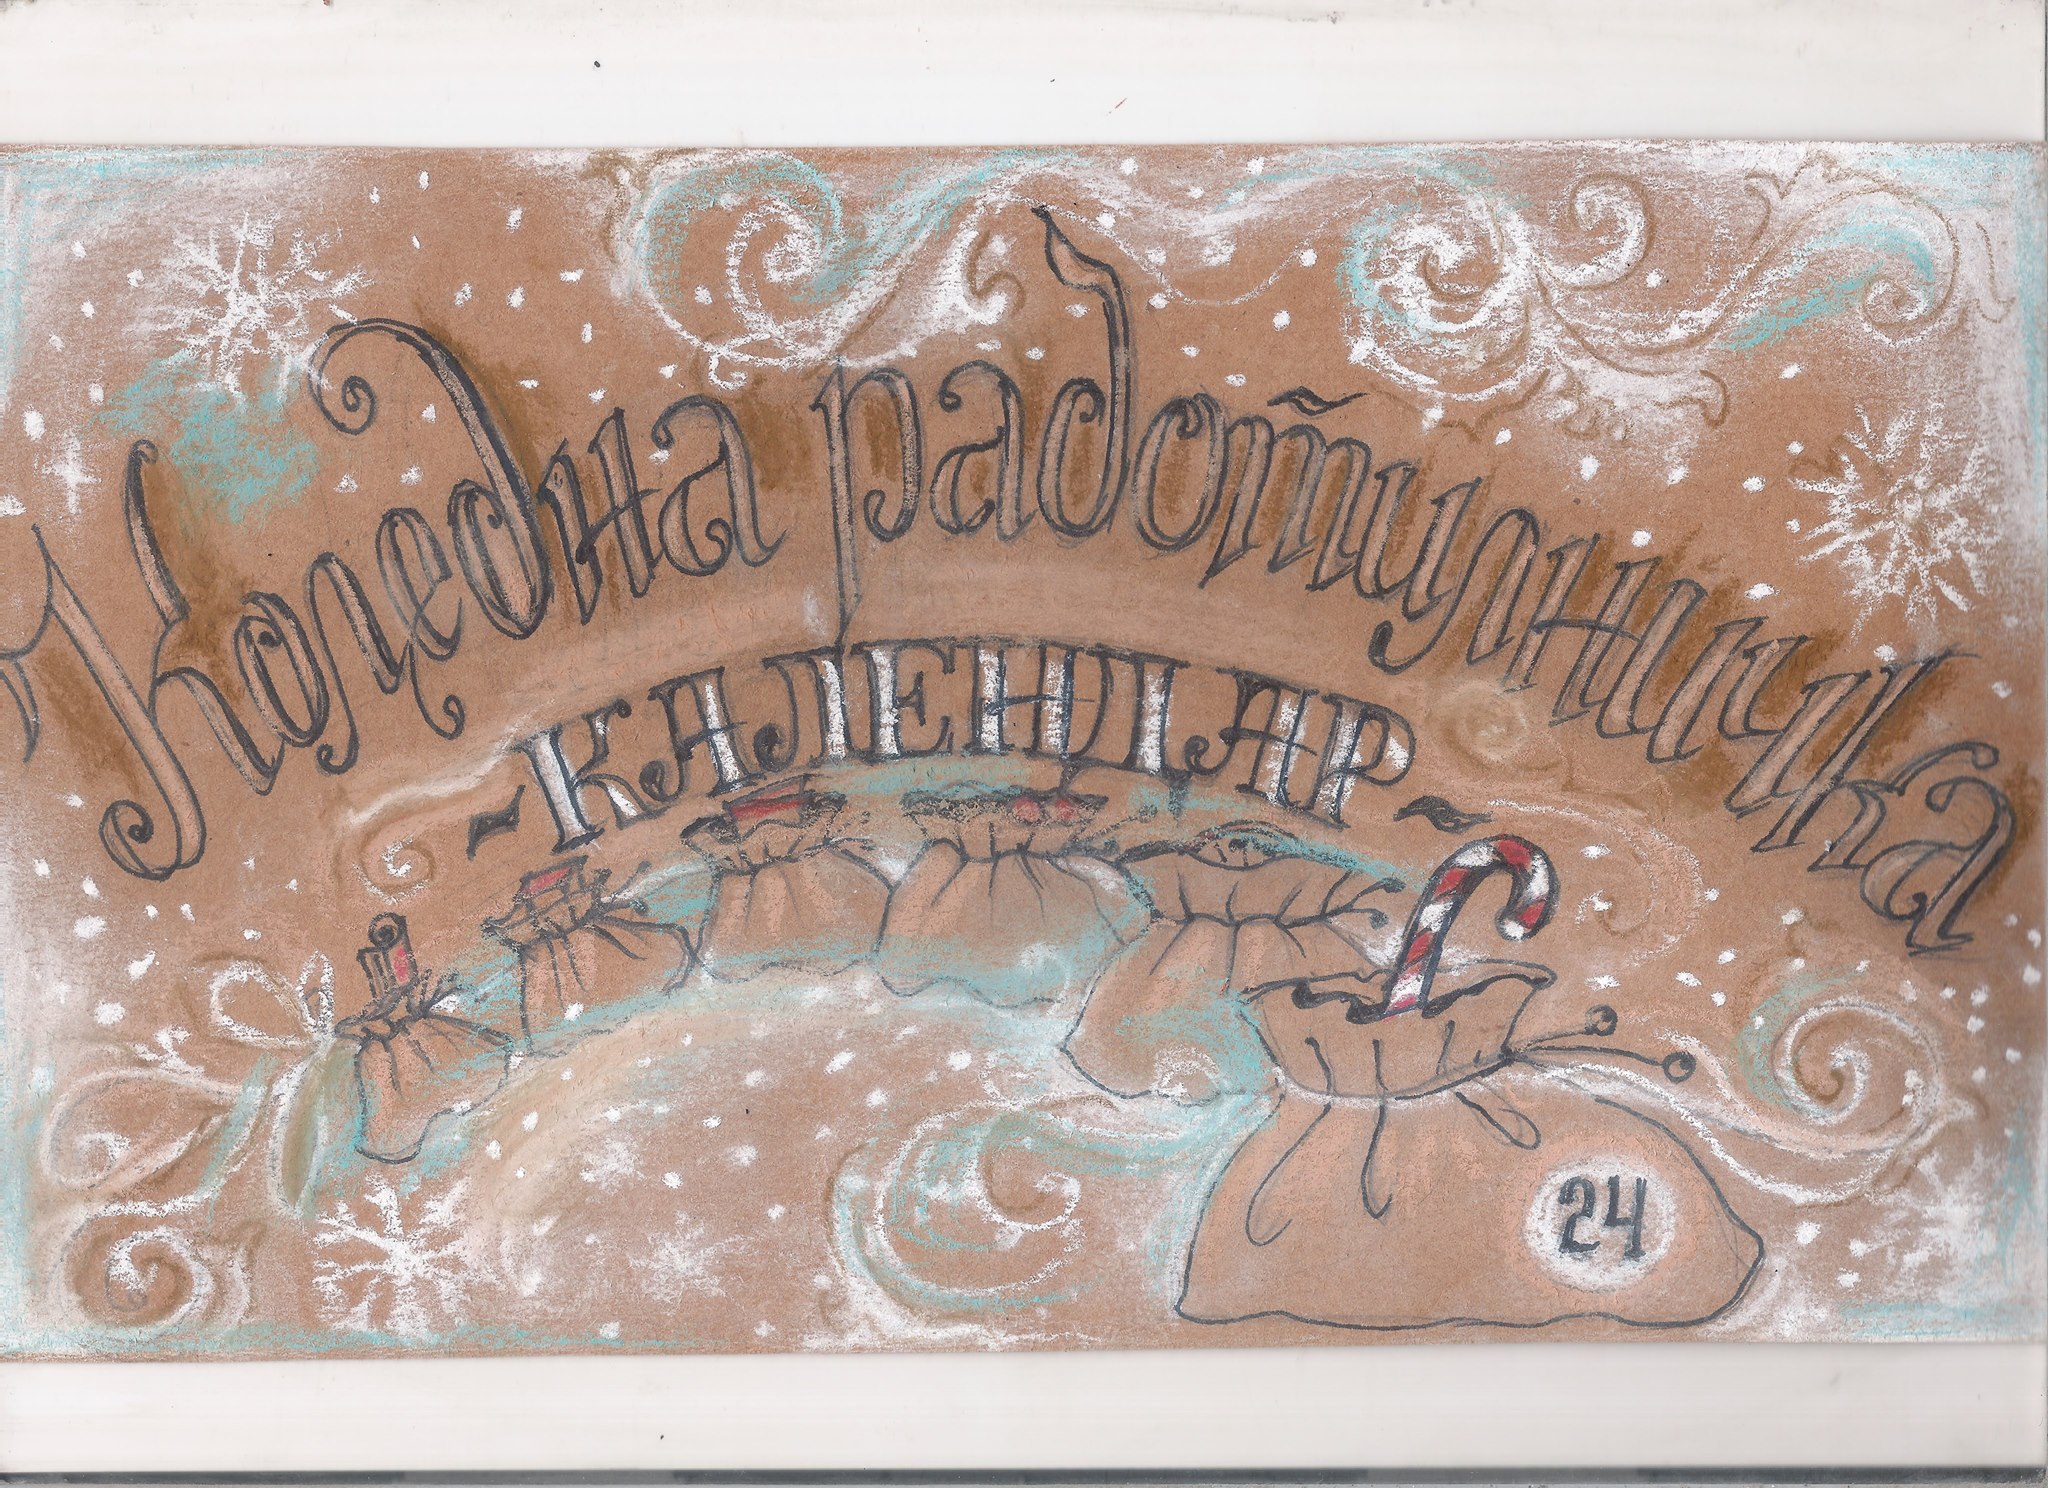 Коледна работилничка
~КАЛЕНДАР~
24